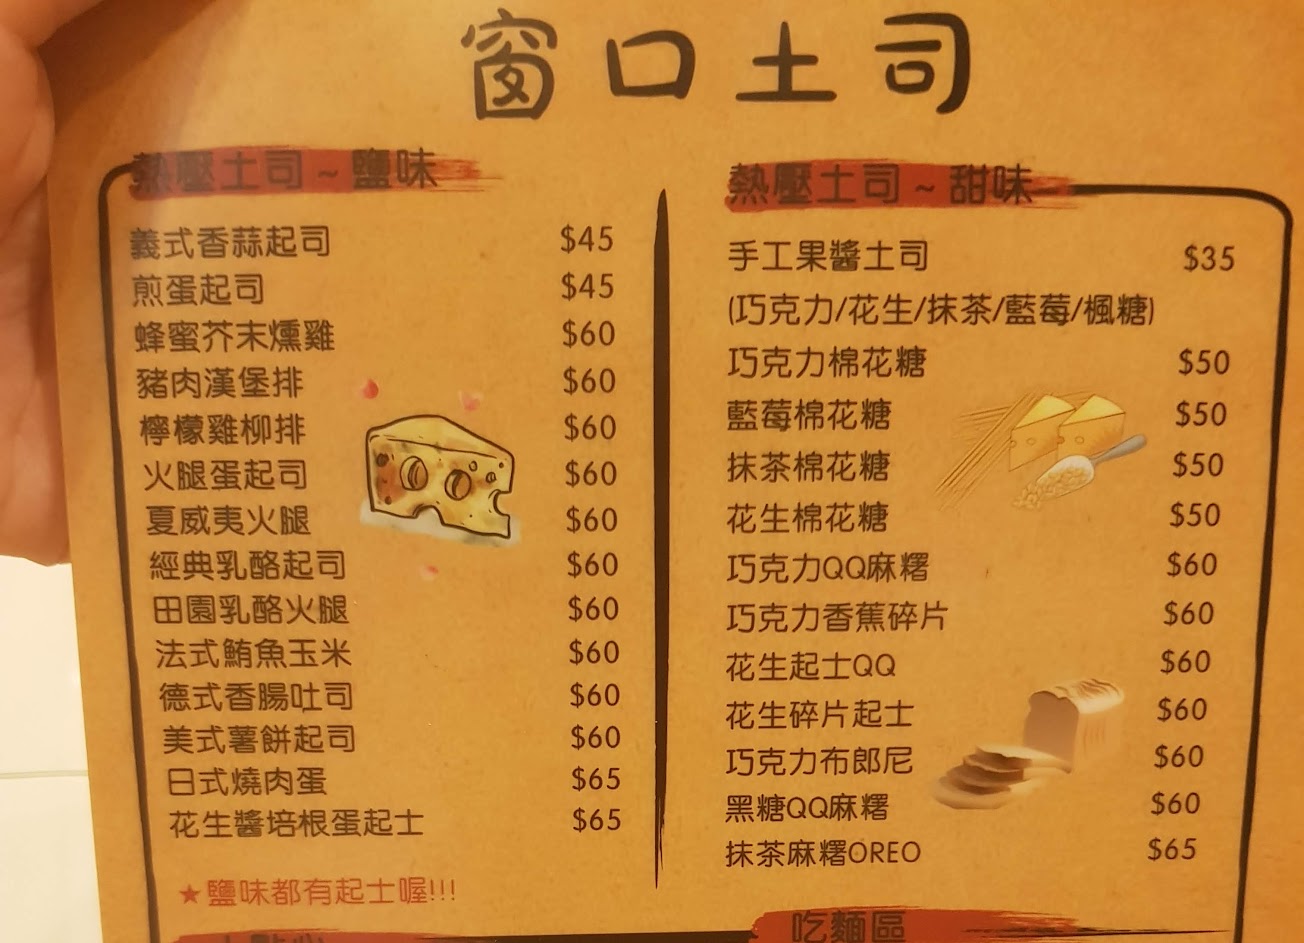 窗口土司
熱壓土司~鹽味
義式香蒜起司 $45
煎蛋起司 $45
蜂蜜芥末燻雞 $60
豬肉漢堡排 $60
檸檬雞柳排 $60
火腿蛋起司 $60
夏威夷火腿 $60
經典乳酪起司 $60
田園乳酪火腿 $60
法式鮪魚玉米 $60
德式香腸吐司 $60
美式薯餅起司 $60
日式燒肉蛋 $65
花生醬培根蛋起士 $65
★鹽味都有起士喔!!!
熱壓土司~甜味
手工果醬土司 $35
(巧克力/花生/抹茶/藍莓/楓糖)
巧克力棉花糖 $50
藍莓棉花糖 $50
抹茶棉花糖 $50
花生棉花糖 $50
巧克力QQ麻糬 $60
巧克力香蕉碎片 $60
花生起士QQ $60
花生碎片起士 $60
巧克力布郎尼 $60
黑糖QQ麻糬 $60
抹茶麻糬OREO $65
吃麵區